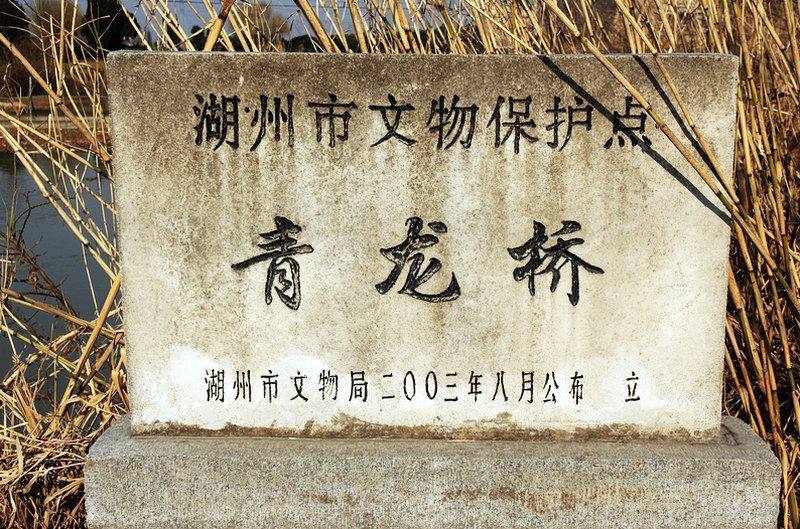 湖州市文物保护点
青龙桥
湖州市文物局二〇〇三年八月公布 立